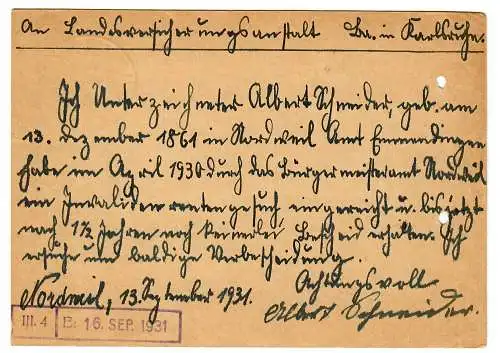 An Landesversicherungsanstalt Ba. in Karlsruhe.
Ich Unterzeichneter Albert Schneider, geb. am
13. Dezember 1861 in Nordweil Amt Emmendingen
habe im April 1930 durch das Bürgermeisteramt Nordweil
ein Invalidenrentengesuch eingereicht u. bis jetzt
nach 1½ Jahren noch keinerlei Bescheid erhalten. Ich
ersuche um baldige Verbescheidung.
Achtungsvoll
Nordweil, 13. September 1931. Albert Schneider.
III. 4 E: 16. SEP. 1931